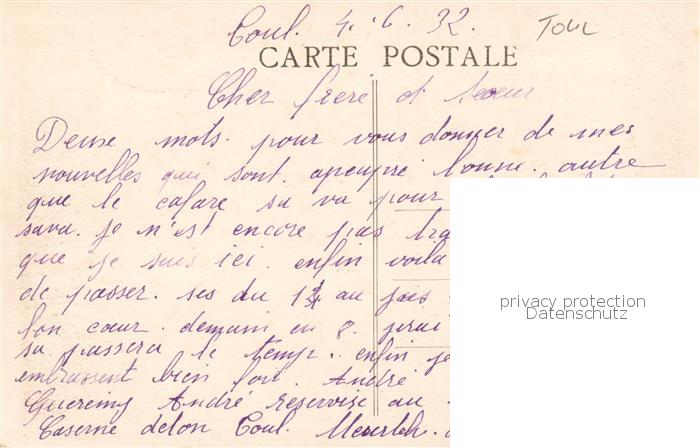 Toul. 4.6.32.
TOUL
CARTE POSTALE
Cher frere et soeur
Deux mots. pour vous donner de mes
nouvelles qui sont. apeupré bonne. autre
que le cafare sa va pour
sava. je n'est encore pas
que je suis ici. enfin voila
de passer. ses du 14 au jais
bon cœur. demain en 8. jirai
sa passera le temp. enfin je
embrassent bien fort. André
André reserviste au
Caserne Toul.
privacy protection
Datenschutz